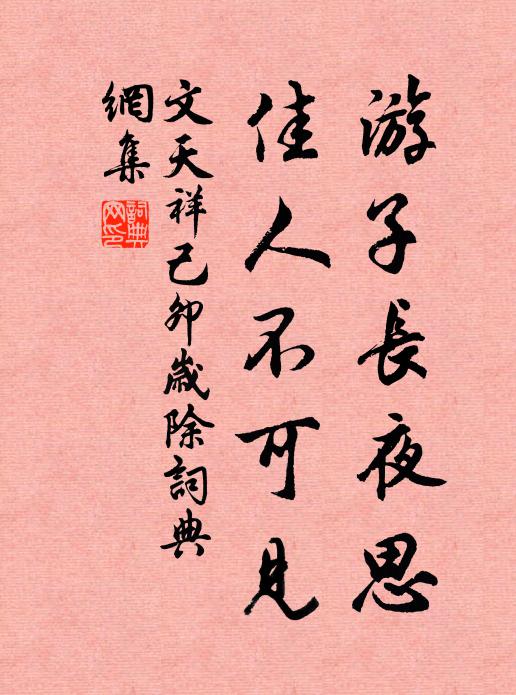 游子長夜思
佳人不可見
文天祥己卯歲除詞典
網集
詞典
網印